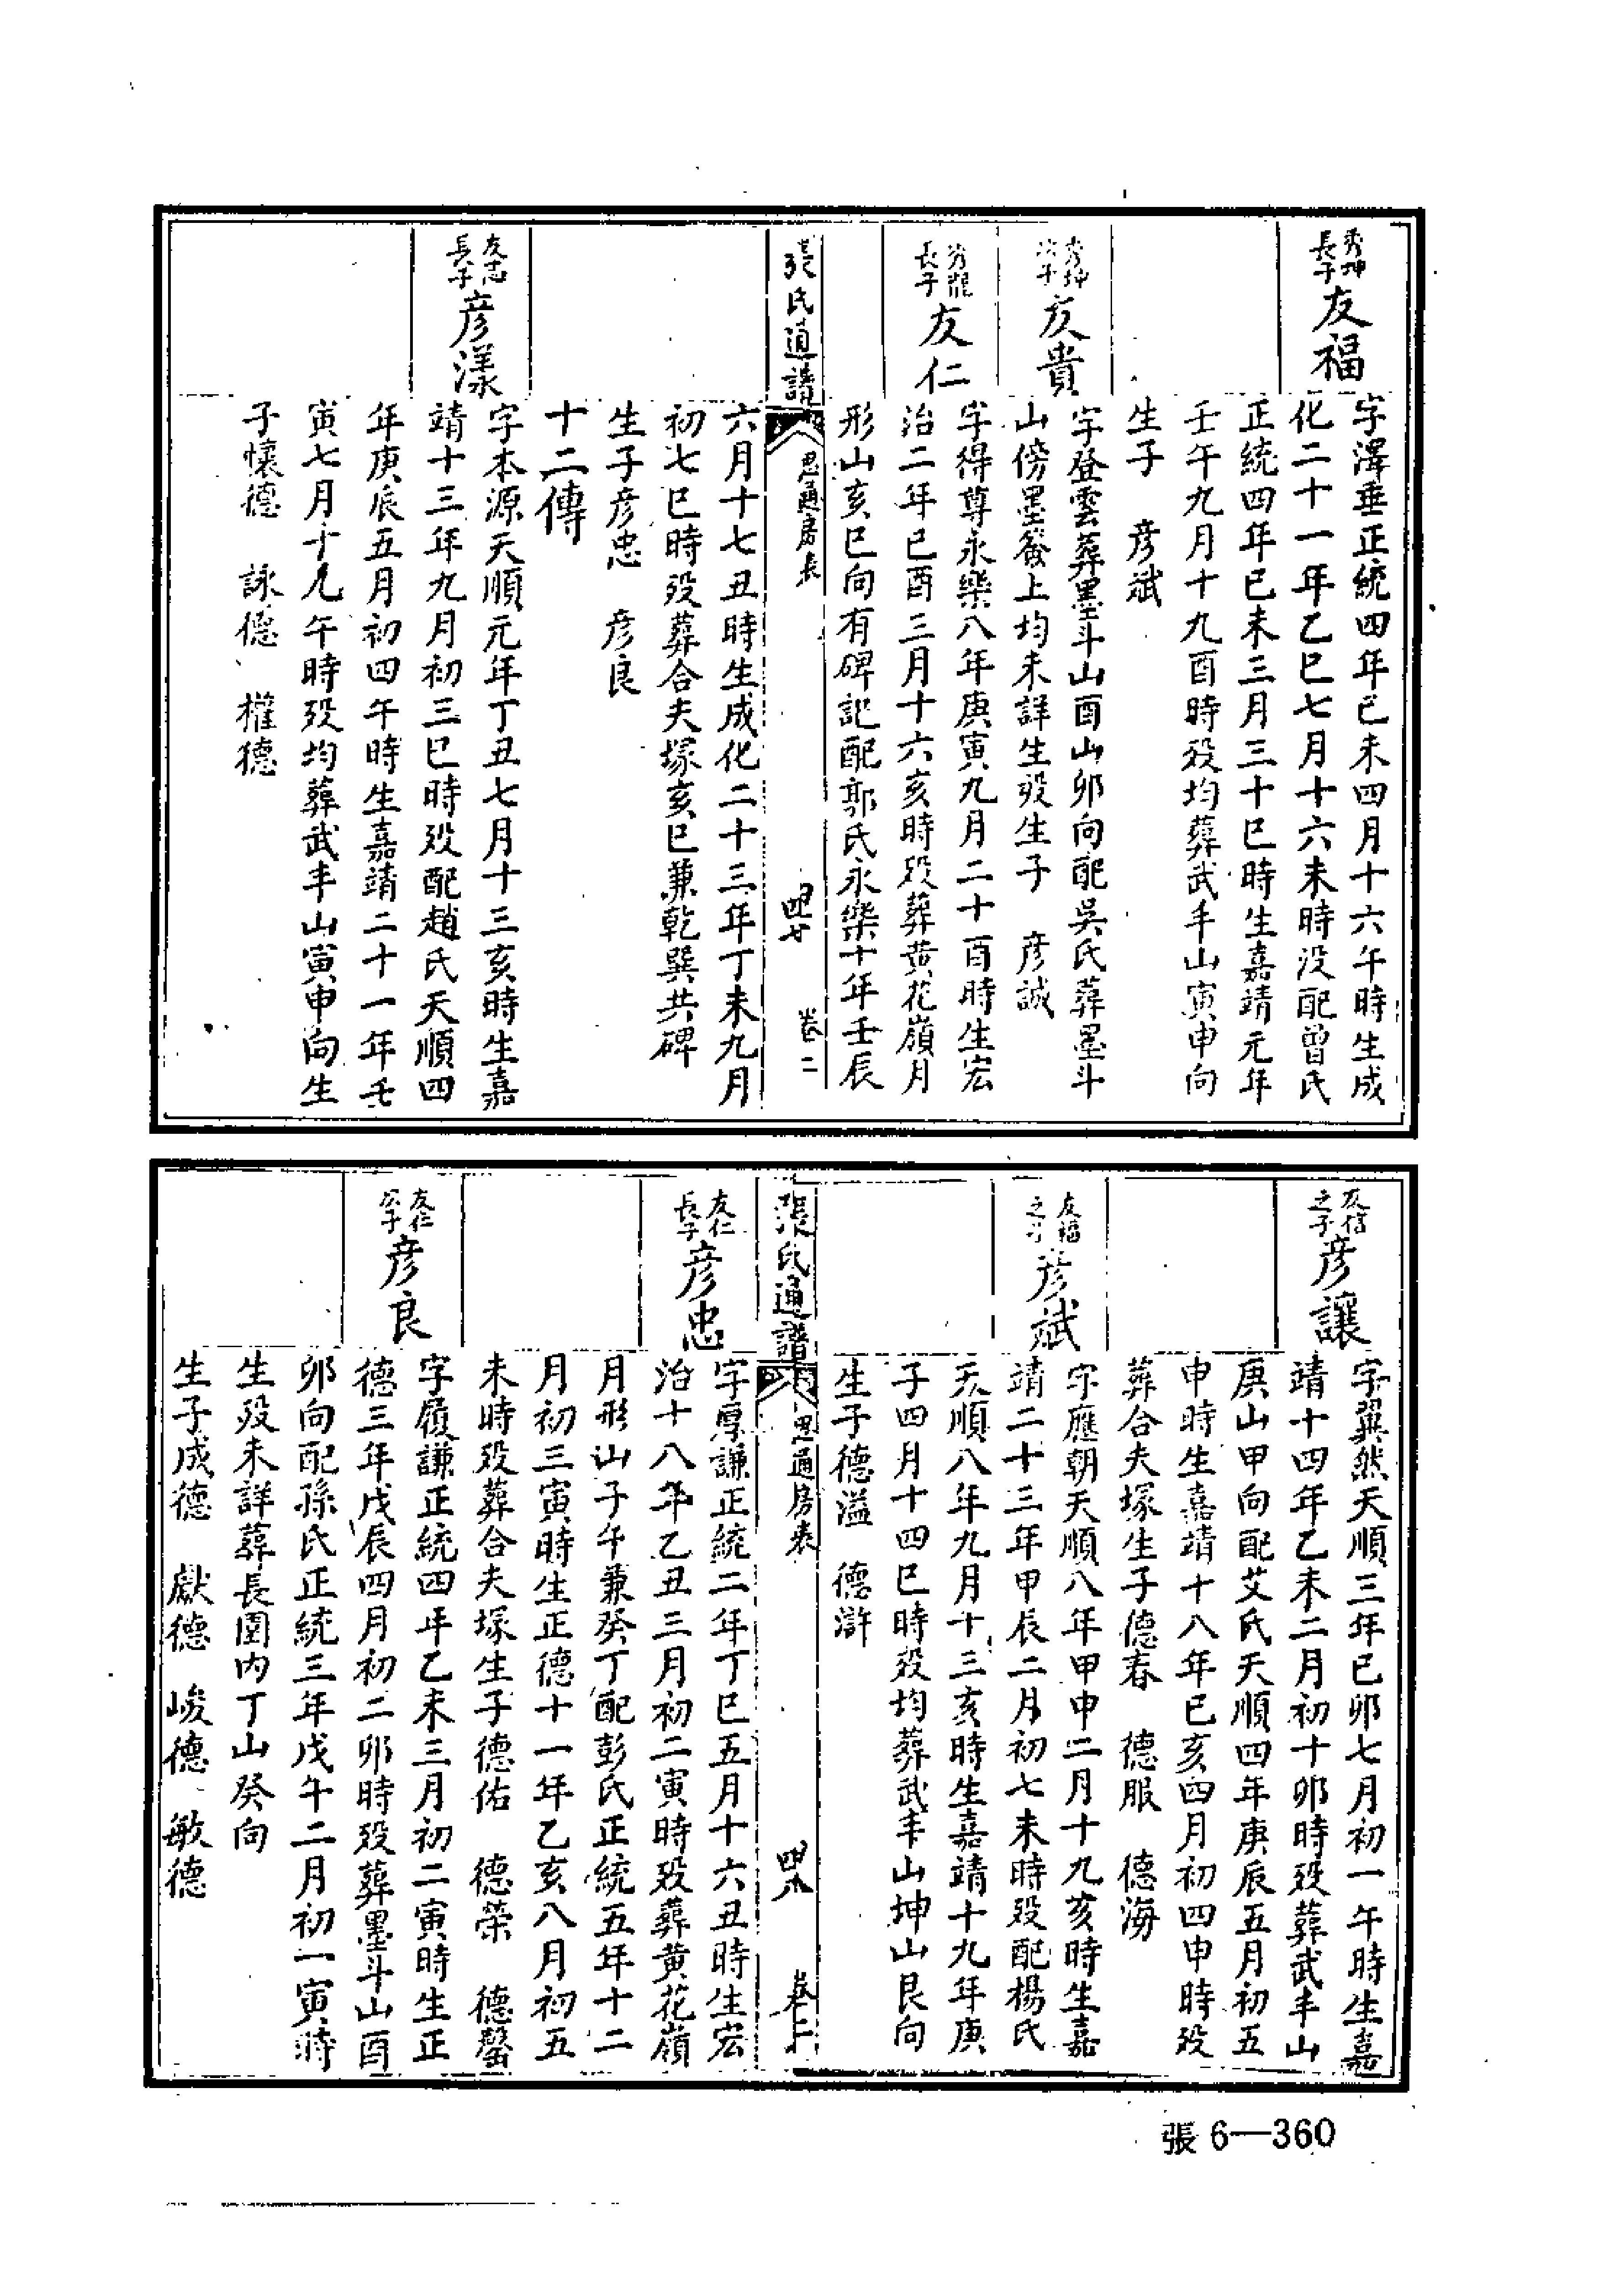 秀坤長子
友福
字澤垂正統四年己未四月十六午時生成
化二十一年乙巳七月十六未時没配曾氏
正統四年已未三月三十巳時生嘉靖元年
壬午九月十九酉時殁均葬武丰山寅申向
生子　彦斌
友貴
字登雲葬墨斗山酉山卯向配吳氏葬墨斗
山傍墨盤上均未詳生殁生子　彦誠
長子
友仁
字得尊永樂八年庚寅九月二十酉時生宏
治二年已酉三月十六亥時殁葬黄花嶺月
形山亥巳向有碑記配郭氏永樂十年壬辰
張氏通譜
思通房表
四七
卷二
六月十七丑時生成化二十三年丁未九月
初七巳時殁葬合夫塚亥巳兼乾巽共碑
生子彦忠　彦良
十二傳
友忠長子
彦漾
字本源天順元年丁丑七月十三亥時生嘉
靖十三年九月初三巳時殁配趙氏天順四
年庚辰五月初四午時生嘉靖二十一年壬
寅七月十九午時殁均葬武丰山寅申向生
子懷德　詠德　權德
友信之子
彦讓
字翼然天順三年已卯七月初一午時生嘉
靖十四年乙未二月初十卯時殁葬武丰山
庚山甲向配艾氏天順四年庚辰五月初五
申時生嘉靖十八年已亥四月初四申時殁
葬合夫塚生子德春　德服　德海
友福之子
彦斌
字應朝天順八年甲申二月十九亥時生嘉
靖二十三年甲辰二月初七未時殁配楊氏
天順八年九月十三亥時生嘉靖十九年庚
子四月十四巳時殁均葬武丰山坤山艮向
生子德溢　德滸
張氏通譜
思通房表
四八
卷二
友仁長子
彦忠
字厚謙正統二年丁巳五月十六丑時生宏
治十八年乙丑三月初二寅時殁葬黄花嶺
月形山子午兼癸丁配彭氏正統五年十二
月初三寅時生正德十一年乙亥八月初五
未時殁葬合夫塚生子德佑　德榮　德馨
友仁次子
彦良
字履謙正統四年乙未三月初二寅時生正
德三年戊辰四月初二卯時殁葬墨斗山酉
卯向配孫氏正統三年戊午二月初一寅時
生殁未詳葬長圍内丁山癸向
生子成德　獻德　峻德　敏德
張6—360